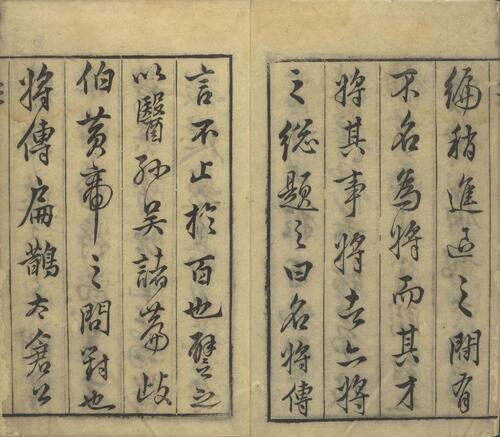 編稍進退之間有
不名為將而其才
將其事將者亦將
之總題之曰名將傳
言不止於百也譬之
以醫孫吳諸篇歧
伯黃帝之問對也
將傳扁鵲太倉公